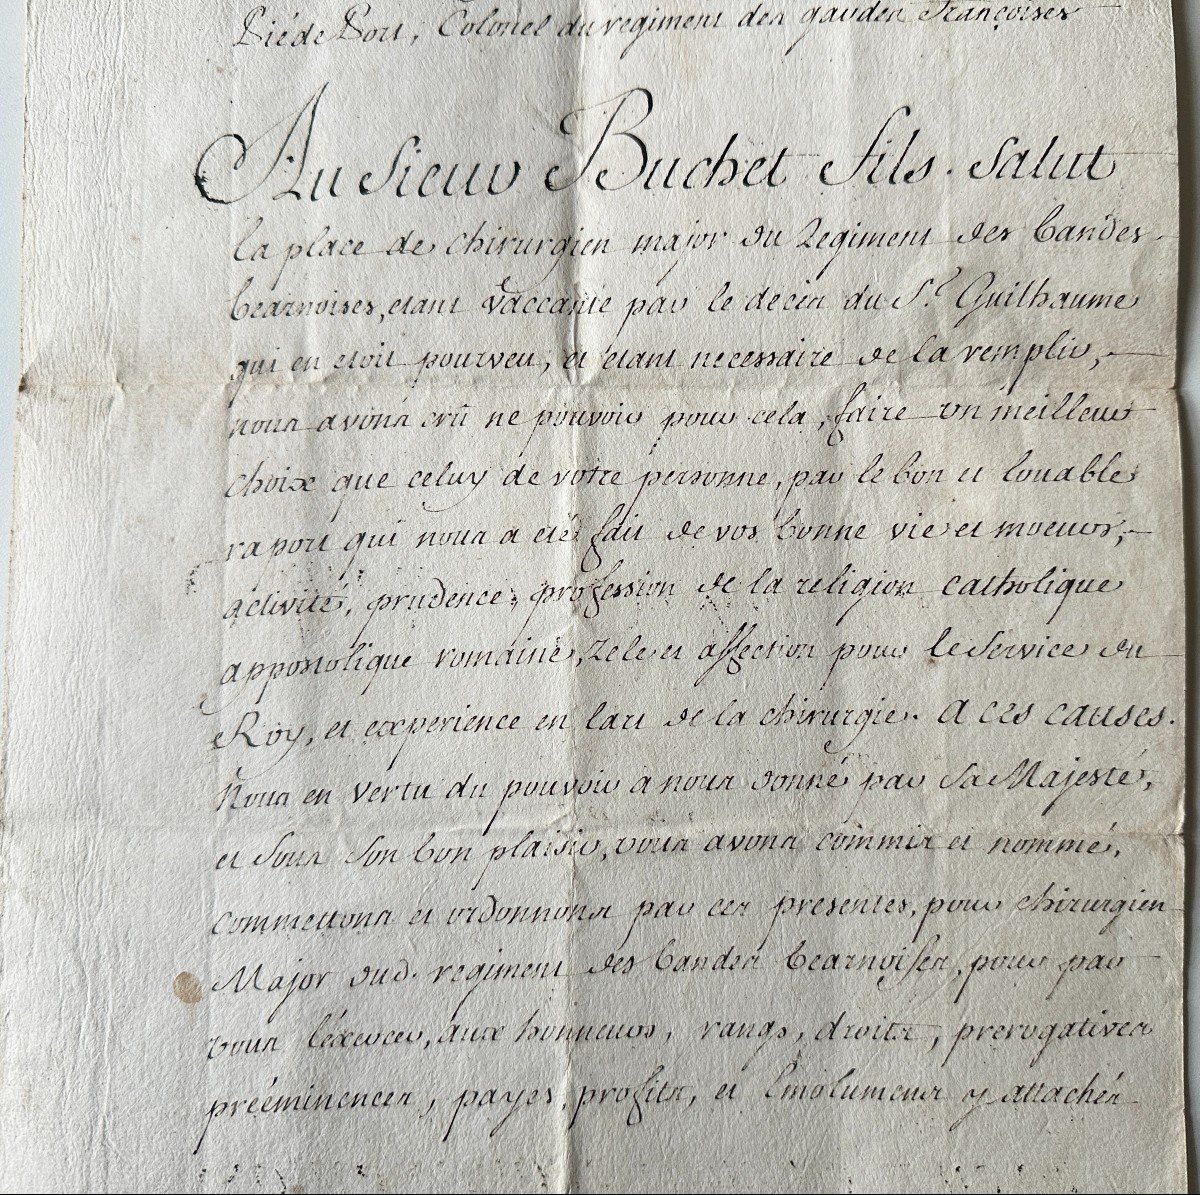 Pié de Port, Colonel du regiment des gardes Françoises
Au Sieur Buchet fils. Salut
la place de chirurgien major du Regiment des bandes
bearnoises, etant vaccante par le deces du S.r Guilhaume
qui en etoit pourveu, et etant necessaire de la remplir,
nous avons crû ne pouvoir pour cela, faire un meilleur
choix que celuy de votre personne, par le bon et louable
raport qui nous a eté fait de vos bonne vie et moeurs,
activité, prudence, profession de la religion catholique
appostolique romaine, Zele et affection pour le service du
Roy, et experience en lart de la chirurgie. A ces causes.
Nous en vertu du pouvoir a nous donné par Sa Majesté,
et sous son bon plaisir, vous avons commis et nommé,
commettons et ordonnons par ces presentes, pour chirurgien
Major dud. regiment des bandes bearnoises, pour par
vous l'éxercer, aux honneurs, rangs, droits, prerogatives
prééminences, payes, profits, et Emolumens y attachés